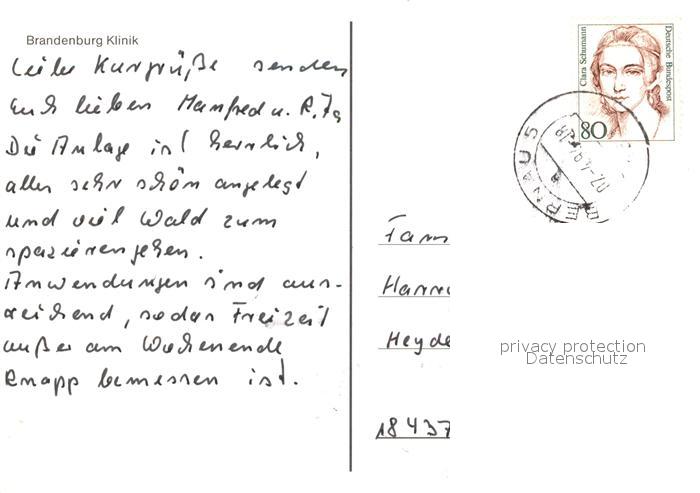 Brandenburg Klinik
Liebe Kurgrüße senden
Euch lieben Manfred u. R.
Die Anlage ist herrlich,
alles sehr schön angelegt
und viel Wald zum
spazierengehen.
Anwendungen sind aus-
reichend, sodas Freizeit
außer am Wochenende
knapp bemessen ist.
Clara Schumann
Deutsche Bundespost
80
ERNAU 5
Fam
Hann
Heyde
18437
privacy protection
Datenschutz